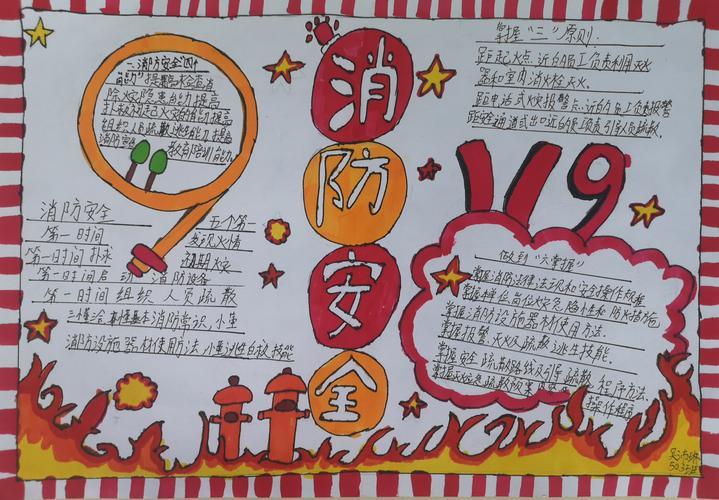 消
防
安
全
一、消防安全"四个
能力"提高检查消
除火灾隐患能力提高
扑救初起火灾的能力提高
组织人员疏散逃生能力提高
消防宣传教育培训能力
掌握"三"原则:
距起火点近的员工负责利用灭火
器和室内消火栓灭火。
距电话或火灾报警点近的员工负责报警
距安全通道或出口近的员工负责引导人员疏散。
消防安全 五个第一
第一时间 发现火情
第一时间扑求 初期火灾
第一时间启动消防设备
第一时间组织人员疏散
三懂三会:懂基本消防常识,懂
消防设施器材使用方法,懂逃生自救技能
119
做到"六掌握"
掌握消防法律法规和安全操作规程
掌握本单位岗位火灾危险性和防火措施
掌握消防设施器材使用方法.
掌握报警、灭火及疏散逃生技能.
掌握安全疏散路线及引导疏散程序方法
掌握灭火应急疏散预案及
操作程序
503班